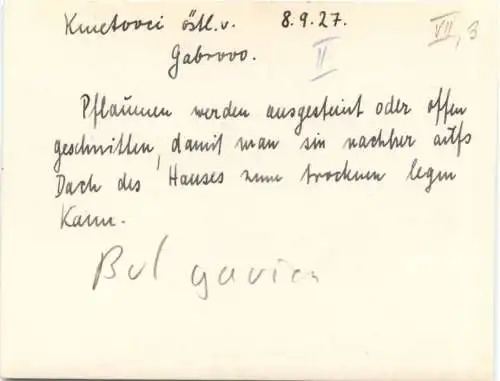 Kmetovci östl. v. 8.9.27. VII, 3
Gabrovo. II
Pflaumen werden ausgesteint oder offen
geschnitten, damit man sie nachher aufs
Dach des Hauses zum trocknen legen
kann.
Bulgarien